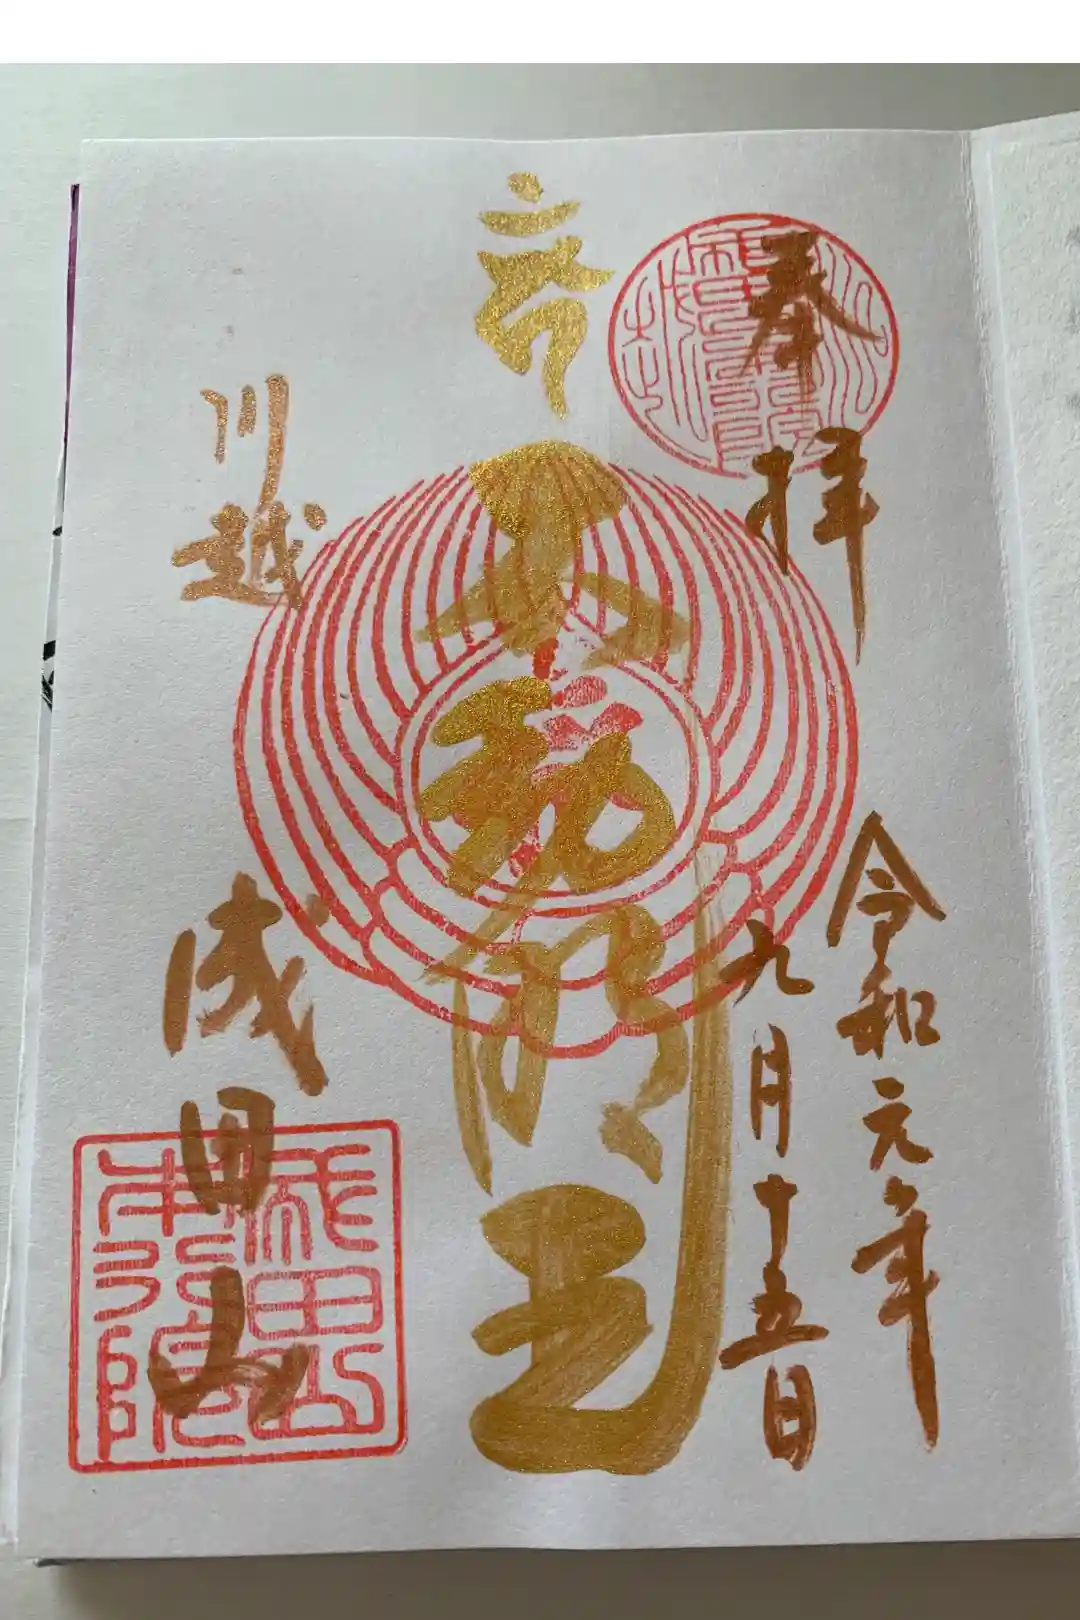 奉拝
令和元年
九月十五日
不動明王
川越
成田山
成田山
本院